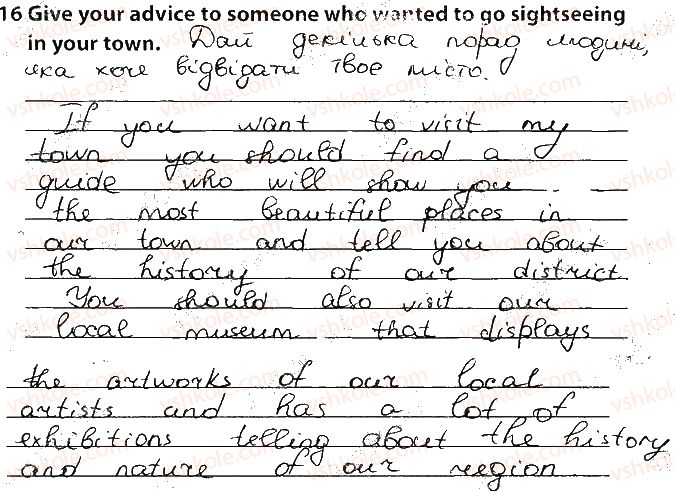 16 Give your advice to someone who wanted to go sightseeing
in your town. Дай декілька порад людині,
яка хоче відвідати твоє місто.
If you want to visit my
town you should find a
guide who will show you
the most beautiful places in
our town and tell you about
the history of our district
You should also visit our
local museum that displays
the artworks of our local
artists and has a lot of
exhibitions telling about the history
and nature of our region